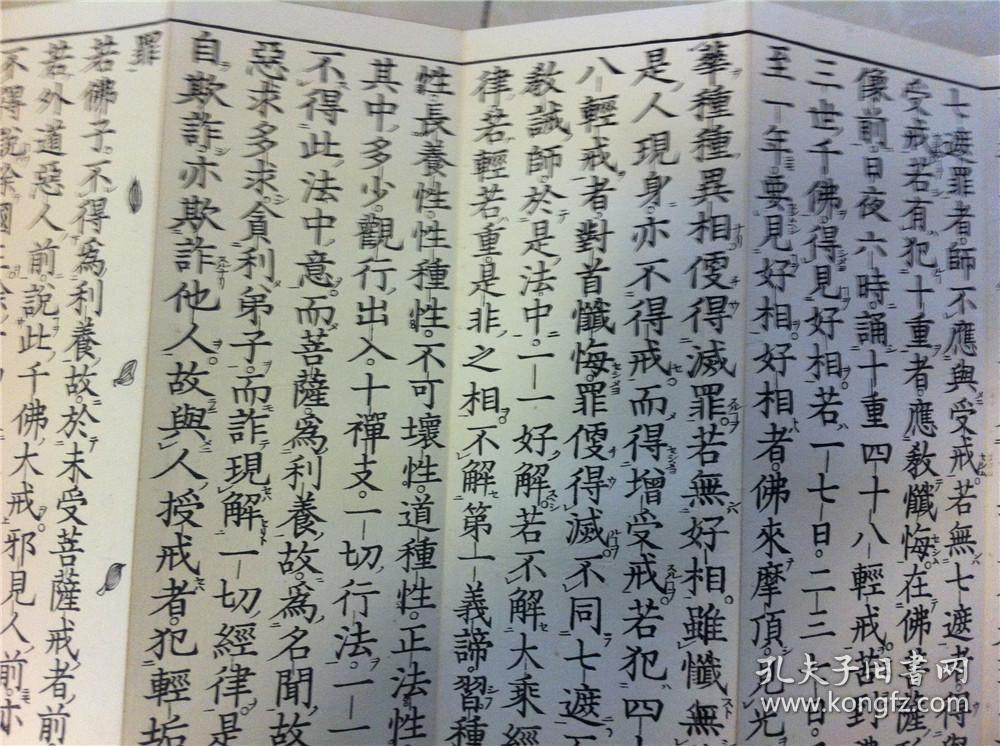 七遮罪者師不應與受戒若無七遮者得
受戒若有犯十重者應教懺悔在佛菩薩
像前日夜六時誦十重四十八輕戒
三世千佛得見好相若一七日二三七日
至一年要見好相好相者佛來摩頂見光
華種種異相便得滅罪若無好相雖懺無
是人現身亦不得戒而得增受戒若犯四十
八輕戒者對首懺悔罪便得滅不同七遮
教誡師於是法中一一好解若不解大乘經
律若輕若重是非之相不解第一義諦習種
性長養性性種性不可壞性道種性正法性
其中多少觀行出入十禪支一切行法一一
不得此法中意而菩薩為利養故為名聞故
惡求多求貪利弟子而詐現解一切經律是
自欺詐亦欺詐他人故與人授戒者犯輕垢
罪
若佛子不得為利養故於未受菩薩戒者前
若外道惡人前說此千佛大戒邪見人前亦
不得說
孔夫子旧書网
www.kongfz.com